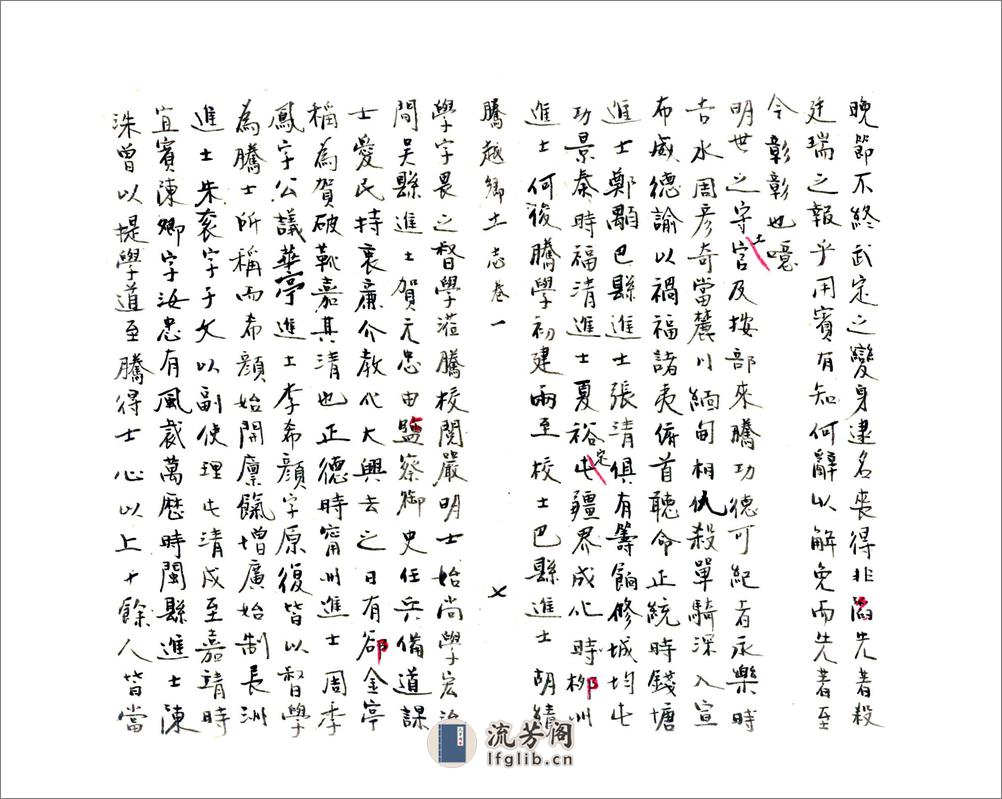 晚節不終武定之變身逮名喪得非陷先著殺
廷瑞之報乎用賓有知何辭以解免而先著至
今彰彰也噫
明世之守土官及按部來騰功德可紀者永樂時
吉水周彥奇當麓川緬甸相仇殺單騎深入宣
布威德諭以禍福諸夷俯首聽命正統時錢塘
進士鄭顒巴縣進士張清俱有籌餉修城均屯
功景泰時福清進士夏裕定屯疆界成化時柳州
進士何俊騰學初建兩至校士巴縣進士胡績
騰越鄉土志卷一
學字畏之督學蒞騰校閱嚴明士始尚學宏治
間吳縣進士賀元忠由監察御史任兵備道課
士愛民持衷廉介教化大興去之日有卻金亭
稱為賀破靴嘉其清也正德時甯州進士周季
鳳字公議華亭進士李希顏字原復皆以督學
為騰士所稱而希顏始開廩餼增廣始制長洲
進士朱袞字子文以副使理屯清戍至嘉靖時
宜賓陳卿字汝忠有風裁萬歷時閩縣進士陳
洙曾以提學道至騰得士心以上十餘人皆當
流芳閣
lfglib.cn